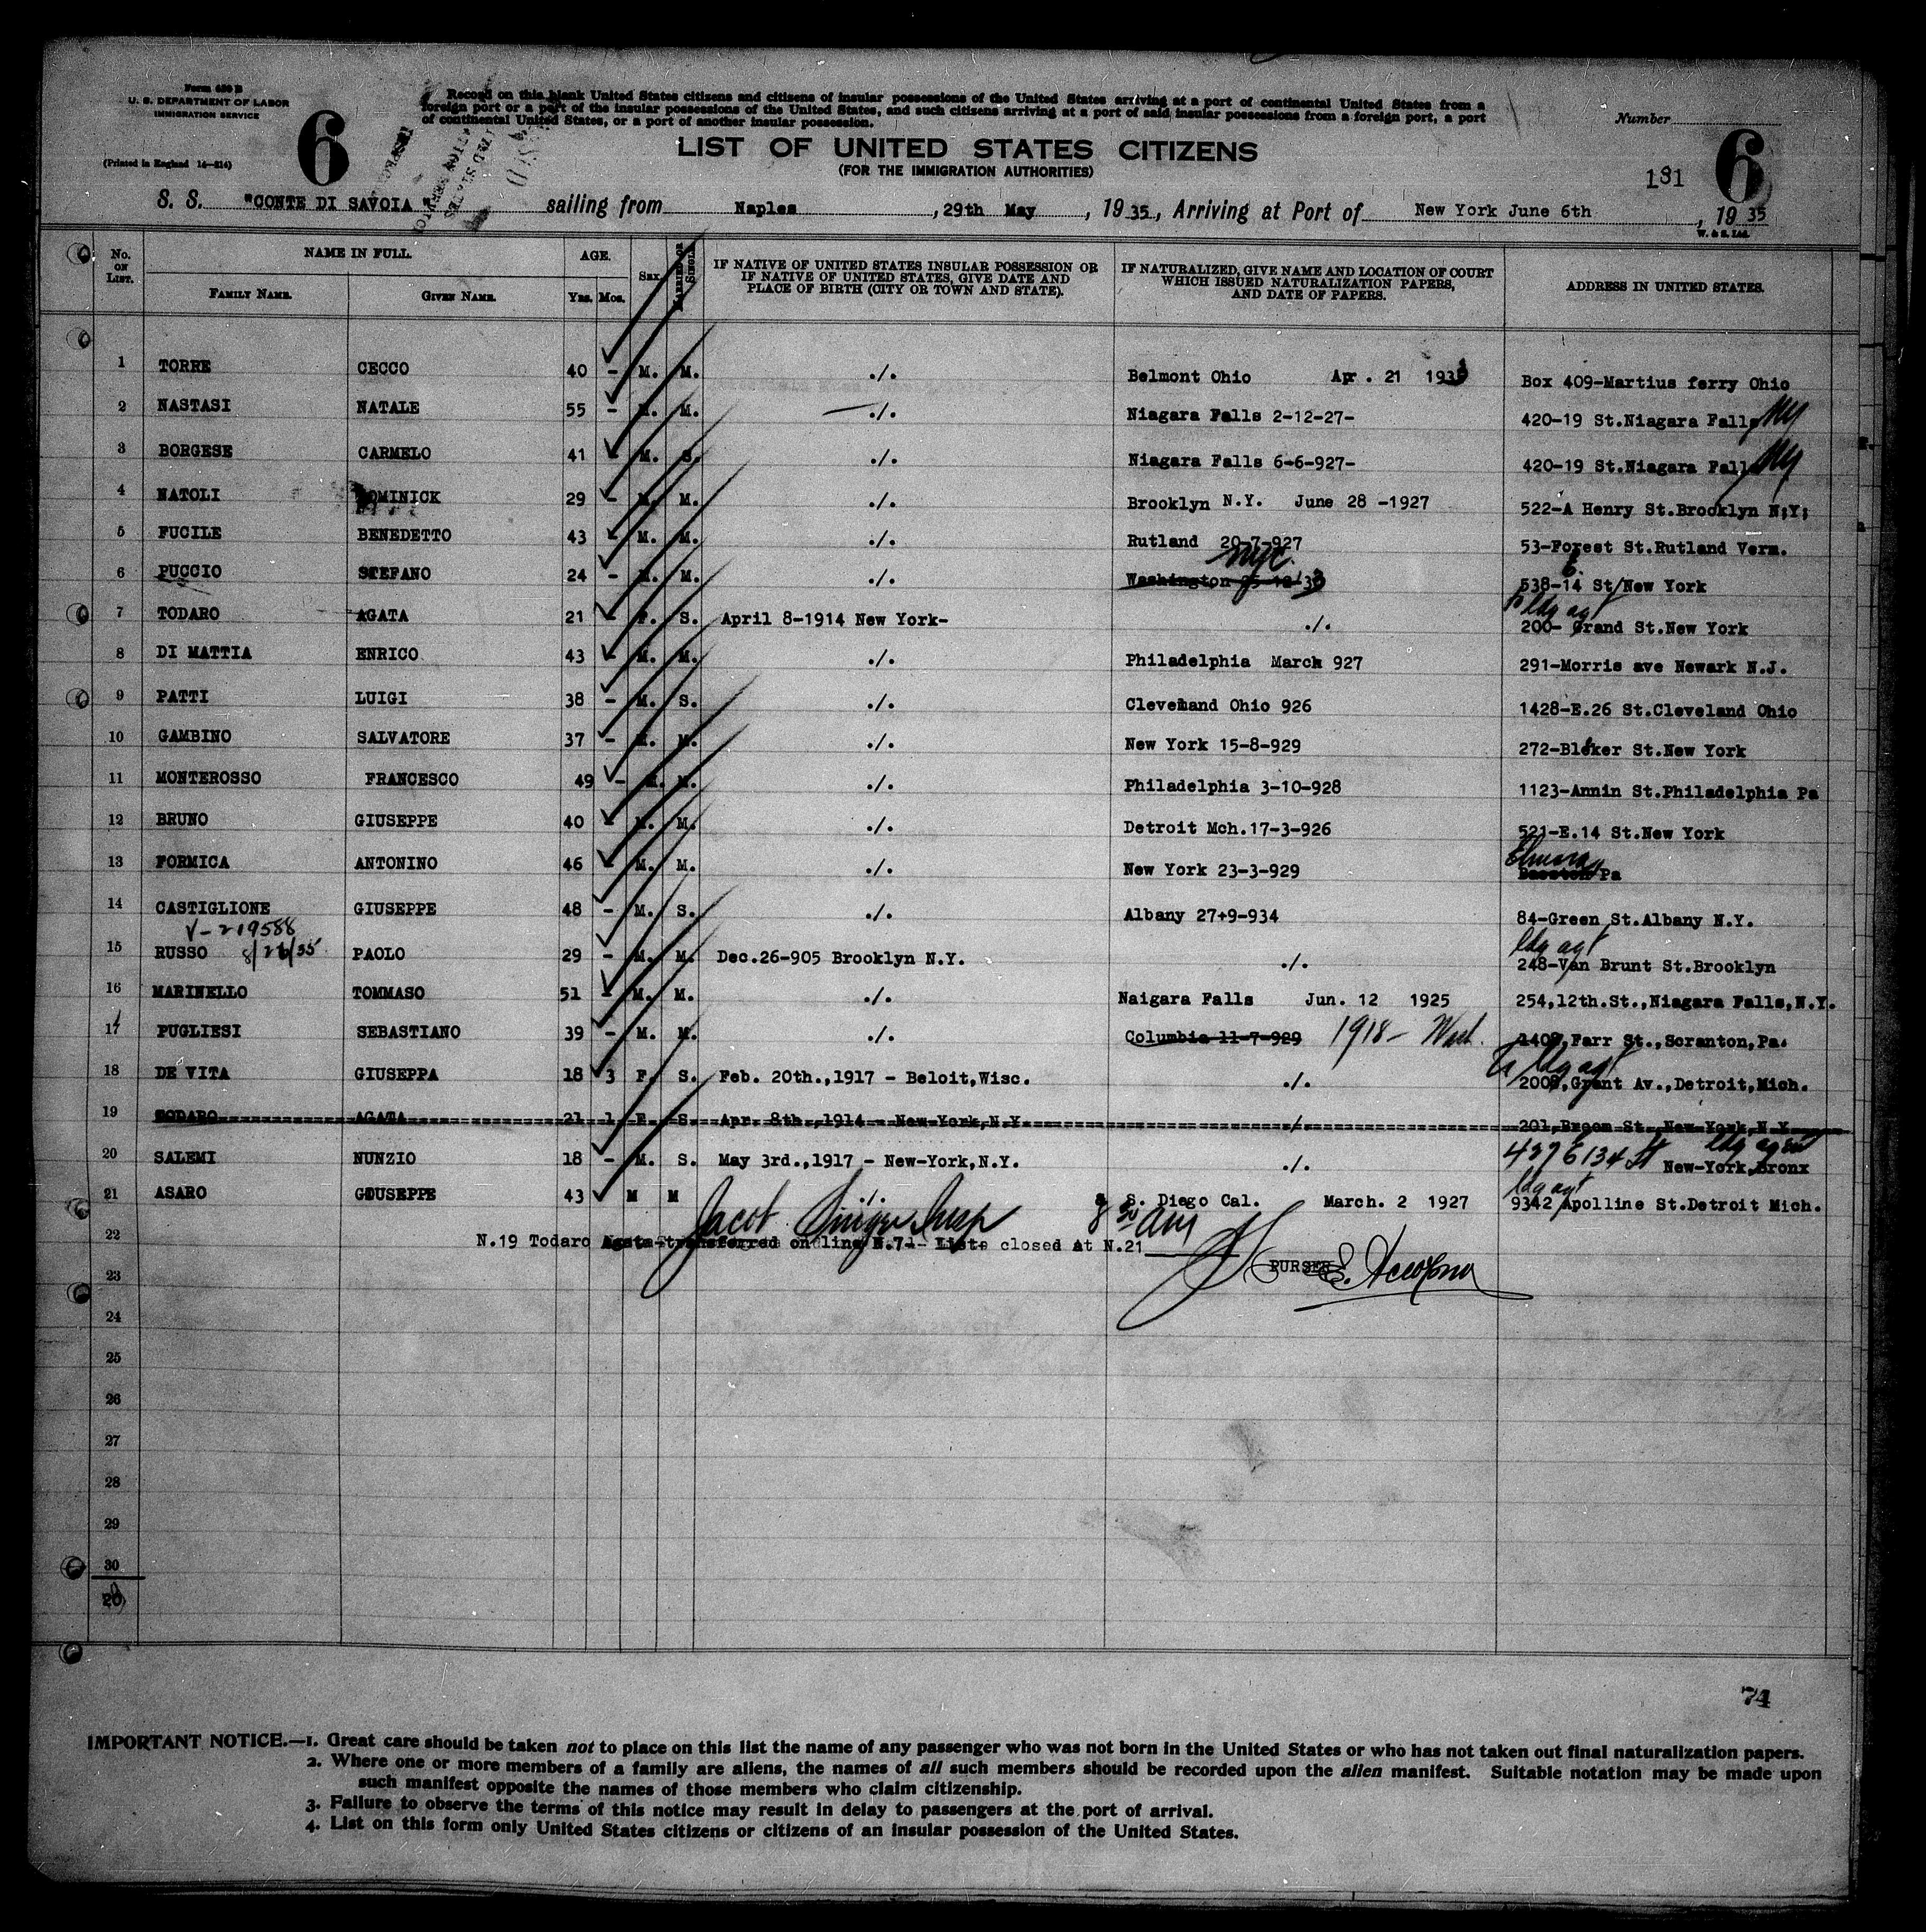 Form 630 B
U. S. DEPARTMENT OF LABOR
IMMIGRATION SERVICE
(Printed in England 14—214)
6
Record on this blank United States citizens and citizens of insular possessions of the United States arriving at a port of continental United States from a
foreign port or a port of the insular possessions of the United States, and such citizens arriving at a port of said insular possessions from a foreign port, a port
of continental United States, or a port of another insular possession.
LIST OF UNITED STATES CITIZENS
(FOR THE IMMIGRATION AUTHORITIES)
Number
6
131
S. S. "CONTE DI SAVOIA sailing from Naples, 29th May, 1935, Arriving at Port of New York June 6th, 1935
W. & S. Ltd.
No. ON LIST. NAME IN FULL. AGE. Sex. MARRIED OR SINGLE. IF NATIVE OF UNITED STATES INSULAR POSSESSION OR IF NATIVE OF UNITED STATES, GIVE DATE AND PLACE OF BIRTH (CITY OR TOWN AND STATE). IF NATURALIZED, GIVE NAME AND LOCATION OF COURT WHICH ISSUED NATURALIZATION PAPERS, AND DATE OF PAPERS. ADDRESS IN UNITED STATES.
FAMILY NAME. GIVEN NAME. Yrs. Mos.
1 TORRE CECCO 40 - M. M. ./. Belmont Ohio Apr. 21 Box 409-Martius ferry Ohio
2 NASTASI NATALE 55 - M. M. ./. Niagara Falls 2-12-27- 420-19 St.Niagara Falls NY
3 BORGESE CARMELO 41 - M. S. ./. Niagara Falls 6-6-927- 420-19 St.Niagara Falls NY
4 NATOLI DOMINICK 29 - M. M. ./. Brooklyn N.Y. June 28 -1927 522-A Henry St.Brooklyn N;Y;
5 FUCILE BENEDETTO 43 - M. M. ./. Rutland 20-7-927 53-Forest St.Rutland Verm.
6 PUCCIO STEFANO 24 - M. M. ./. Washington NYC 538-14 St/New York E.
7 TODARO AGATA 21 - F. S. April 8-1914 New York- ./. 200- Grand St.New York ldg agt
8 DI MATTIA ENRICO 43 - M. M. ./. Philadelphia March 927 291-Morris ave Newark N.J.
9 PATTI LUIGI 38 - M. S. ./. Cleveland Ohio 926 1428-E.26 St.Cleveland Ohio
10 GAMBINO SALVATORE 37 - M. M. ./. New York 15-8-929 272-Bleker St.New York
11 MONTEROSSO FRANCESCO 49 - M. M. ./. Philadelphia 3-10-928 1123-Annin St.Philadelphia Pa
12 BRUNO GIUSEPPE 40 - M. M. ./. Detroit Mch.17-3-926 521-E.14 St.New York
13 FORMICA ANTONINO 46 - M. M. ./. New York 23-3-929 Pa
14 CASTIGLIONE GIUSEPPE 48 - M. S. ./. Albany 27+9-934 84-Green St.Albany N.Y.
V-219588
15 RUSSO 8/26/35 PAOLO 29 - M. M. Dec.26-905 Brooklyn N.Y. ./. 248-Van Brunt St.Brooklyn ldg agt
16 MARINELLO TOMMASO 51 - M. M. ./. Naigara Falls Jun. 12 1925 254,12th.St.,Niagara Falls,N.Y.
17 PUGLIESI SEBASTIANO 39 - M. M. ./. Columbia 11-7-929 1918- Wash. 1409,Farr St.,Scranton,Pa.
18 DE VITA GIUSEPPA 18 3 F. S. Feb. 20th.,1917 - Beloit,Wisc. ./. 2008,Grant Av.,Detroit,Mich. ldg agt
19 TODARO AGATA 21 1 F. S. Apr. 8th.,1914 - New-York,N.Y. ./. 201,Broom St.,New-York,N.Y.
20 SALEMI NUNZIO 18 - M. S. May 3rd.,1917 - New-York,N.Y. ./. 437 E 134 St New-York,Bronx ldg agent
21 ASARO GIUSEPPE 43 M M ./. S. Diego Cal. March. 2 1927 9342 Apolline St.Detroit Mich. ldg agt
Jacob Insp 8 30 AM
22 N.19 Todaro Agata-transferred on line N.7- Lists closed at N.21
23 PURSER
24
25
26
27
28
29
30
20
74
IMPORTANT NOTICE.—1. Great care should be taken not to place on this list the name of any passenger who was not born in the United States or who has not taken out final naturalization papers.
2. Where one or more members of a family are aliens, the names of all such members should be recorded upon the alien manifest. Suitable notation may be made upon
such manifest opposite the names of those members who claim citizenship.
3. Failure to observe the terms of this notice may result in delay to passengers at the port of arrival.
4. List on this form only United States citizens or citizens of an insular possession of the United States.